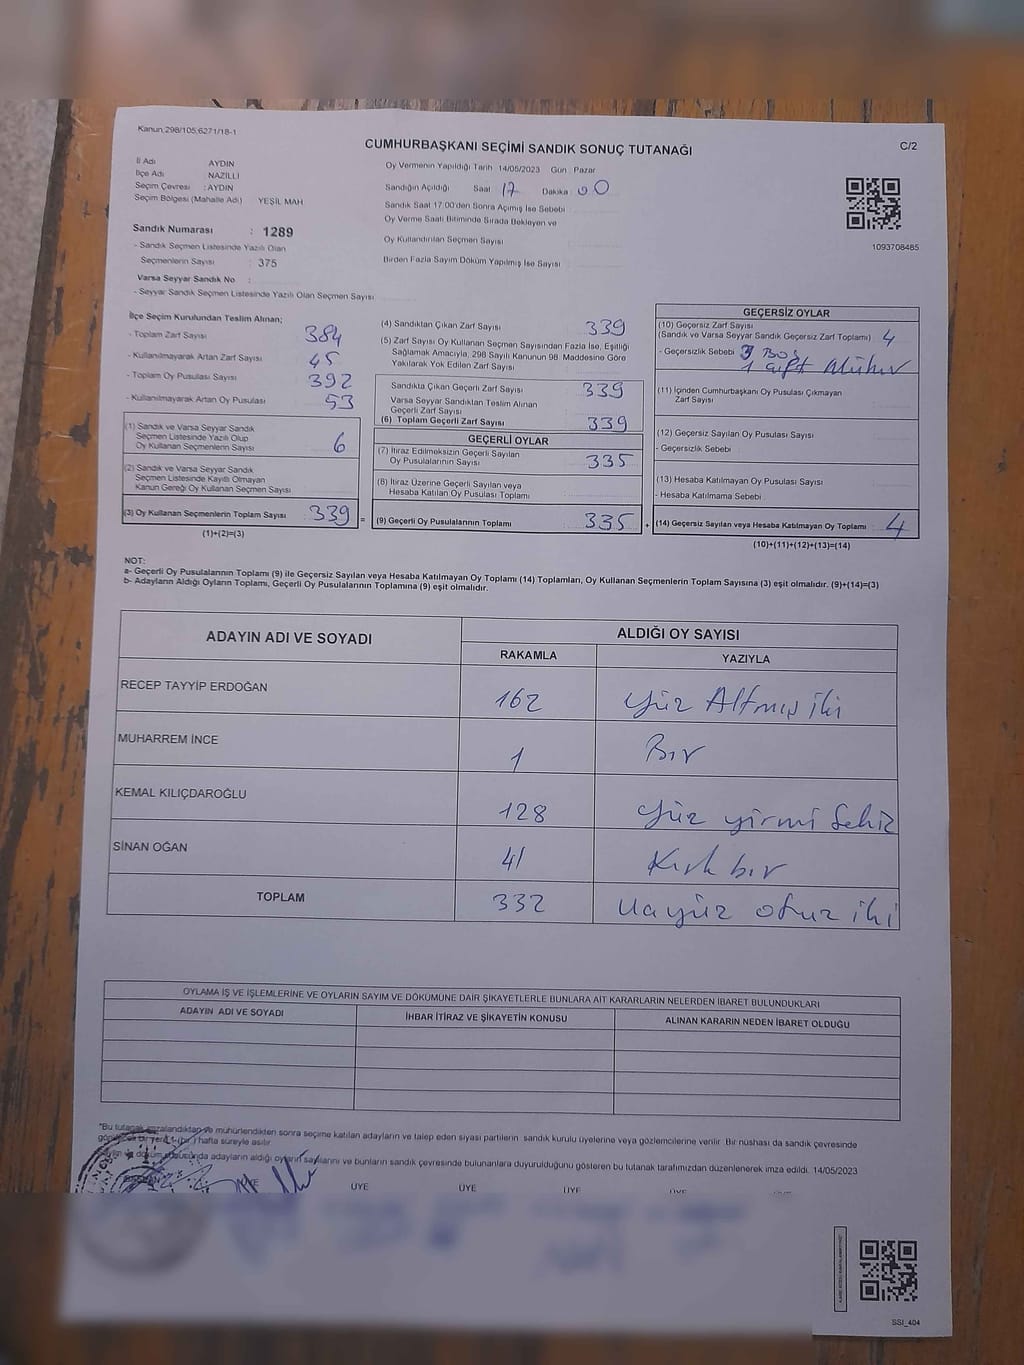 Kanun;298/105,6271/18-1
CUMHURBAŞKANI SEÇİMİ SANDIK SONUÇ TUTANAĞI
C/2
İl Adı AYDIN
İlçe Adı NAZİLLİ
Seçim Çevresi : AYDIN
Seçim Bölgesi (Mahalle Adı) YEŞİL MAH
Sandık Numarası : 1289
- Sandık Seçmen Listesinde Yazılı Olan
Seçmenlerin Sayısı : 375
Varsa Seyyar Sandık No :
- Seyyar Sandık Seçmen Listesinde Yazılı Olan Seçmen Sayısı
Oy Vermenin Yapıldığı Tarih 14/05/2023 Gün : Pazar
Sandığın Açıldığı Saat 17 Dakika 00
Sandık Saat 17:00'den Sonra Açımış İse Sebebi
Oy Verme Saati Bitiminde Sırada Bekleyen ve
Oy Kullandırılan Seçmen Sayısı
Birden Fazla Sayım Döküm Yapılmış İse Sayısı
1093708485
İlçe Seçim Kurulundan Teslim Alınan;
- Toplam Zarf Sayısı 384
- Kullanılmayarak Artan Zarf Sayısı 45
- Toplam Oy Pusulası Sayısı 392
- Kullanılmayarak Artan Oy Pusulası 53
(1) Sandık ve Varsa Seyyar Sandık
Seçmen Listesinde Yazılı Olup
Oy Kullanan Seçmenlerin Sayısı 6
(2) Sandık ve Varsa Seyyar Sandık
Seçmen Listesinde Kayıtlı Olmayan
Kanun Gereği Oy Kullanan Seçmen Sayısı
(3) Oy Kullanan Seçmenlerin Toplam Sayısı 339 =
(1)+(2)=(3)
(4) Sandıktan Çıkan Zarf Sayısı 339
(5) Zarf Sayısı Oy Kullanan Seçmen Sayısından Fazla İse, Eşitliği
Sağlamak Amacıyla, 298 Sayılı Kanunun 98. Maddesine Göre
Yakılarak Yok Edilen Zarf Sayısı
Sandıkta Çıkan Geçerli Zarf Sayısı 339
Varsa Seyyar Sandıktan Teslim Alınan
Geçerli Zarf Sayısı
(6) Toplam Geçerli Zarf Sayısı 339
GEÇERLİ OYLAR
(7) İtiraz Edilmeksizin Geçerli Sayılan
Oy Pusulalarının Sayısı 335
(8) İtiraz Üzerine Geçerli Sayılan veya
Hesaba Katılan Oy Pusulası Toplamı
(9) Geçerli Oy Pusulalarının Toplamı 335 +
GEÇERSİZ OYLAR
(10) Geçersiz Zarf Sayısı
(Sandık ve Varsa Seyyar Sandık Geçersiz Zarf Toplamı) 4
- Geçersizlik Sebebi 3 Boş
1 Çift Mühür
(11) İçinden Cumhurbaşkanı Oy Pusulası Çıkmayan
Zarf Sayısı
(12) Geçersiz Sayılan Oy Pusulası Sayısı
- Geçersizlik Sebebi
(13) Hesaba Katılmayan Oy Pusulası Sayısı
- Hesaba Katılmama Sebebi
(14) Geçersiz Sayılan veya Hesaba Katılmayan Oy Toplamı 4
(10)+(11)+(12)+(13)=(14)
NOT:
a- Geçerli Oy Pusulalarının Toplamı (9) ile Geçersiz Sayılan veya Hesaba Katılmayan Oy Toplamı (14) Toplamları, Oy Kullanan Seçmenlerin Toplam Sayısına (3) eşit olmalıdır. (9)+(14)=(3)
b- Adayların Aldığı Oyların Toplamı, Geçerli Oy Pusulalarının Toplamına (9) eşit olmalıdır.
ADAYIN ADI VE SOYADI
ALDIĞI OY SAYISI
RAKAMLA YAZIYLA
RECEP TAYYİP ERDOĞAN 162 Yüz Altmış iki
MUHARREM İNCE 1 Bır
KEMAL KILIÇDAROĞLU 128 Yüz yirmi Sekiz
SİNAN OĞAN 41 Kırk bır
TOPLAM 332 otuz iki
OYLAMA İŞ VE İŞLEMLERİNE VE OYLARIN SAYIM VE DÖKÜMÜNE DAİR ŞİKAYETLERLE BUNLARA AİT KARARLARIN NELERDEN İBARET BULUNDUKLARI
ADAYIN ADI VE SOYADI İHBAR İTİRAZ VE ŞİKAYETİN KONUSU ALINAN KARARIN NEDEN İBARET OLDUĞU
*Bu tutanak imzalandıktan ve mühürlendikten sonra seçime katılan adayların ve talep eden siyasi partilerin sandık kurulu üyelerine veya gözlemcilerine verilir. Bir nüshası da sandık çevresinde
görülecek bir yere 1 (bir) hafta süreyle asılır.
döküm sonucunda adayların aldığı oyların sayılarını ve bunların sandık çevresinde bulunanlara duyurulduğunu gösteren bu tutanak tarafımızdan düzenlenerek imza edildi. 14/05/2023
ÜYE ÜYE ÜYE ÜYE ÜYE
SSI_404